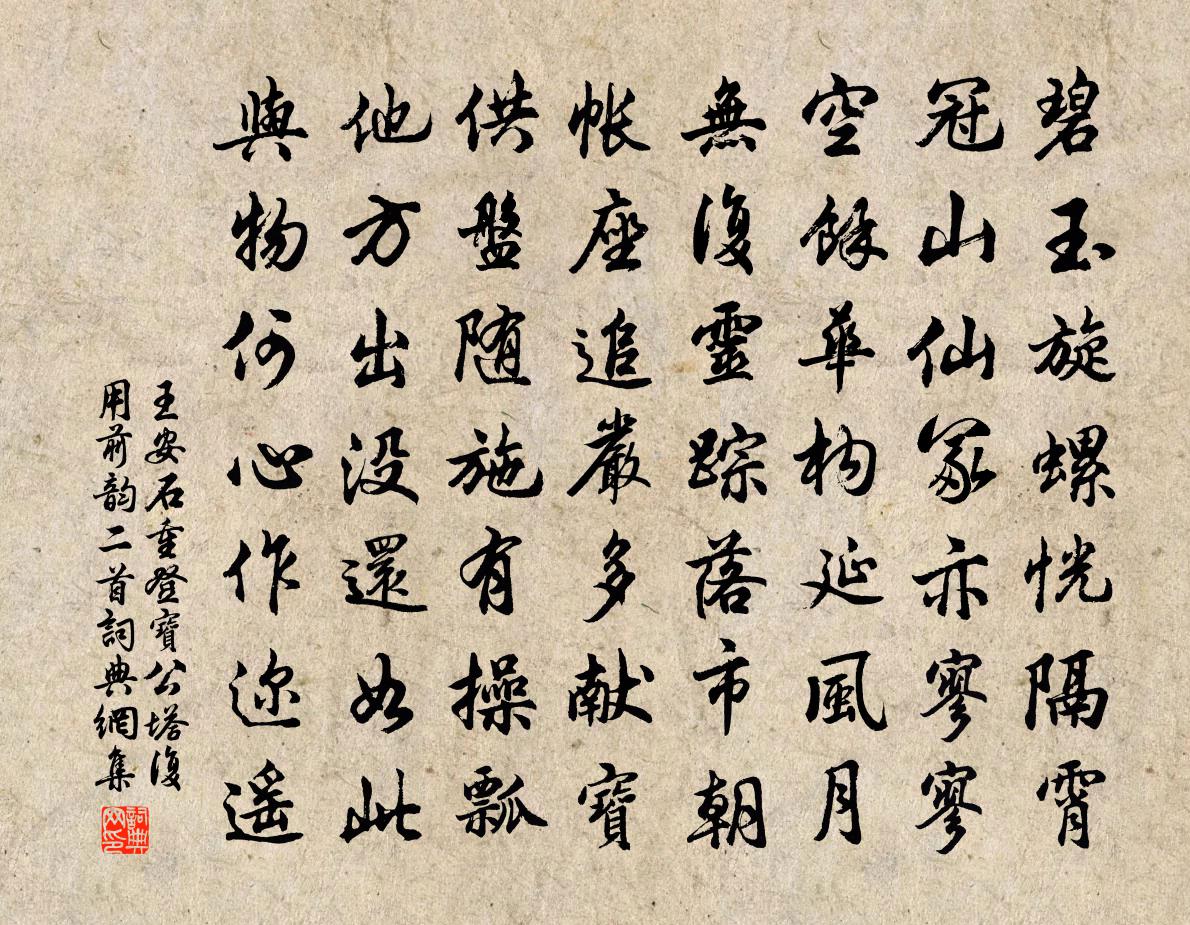 碧玉旋螺恍隔霄
冠山仙冢亦寥寥
空餘華构延風月
無復靈踪落市朝
帐座追嚴多献寶
供盤随施有操瓢
他方出没還如此
與物何心作迩遥
王安石重登寶公塔復
用前韵二首詞典網集
詞典
网印